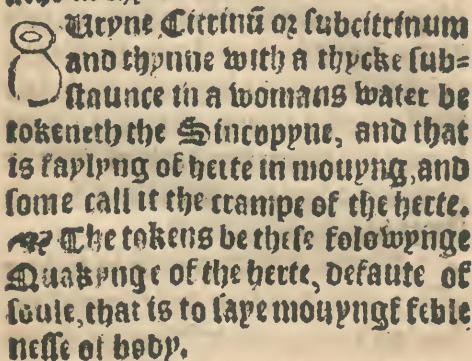 Uryne Citrinū or subcitrinum
and thynne with a thycke sub=
staunce in a womans water be
tokeneth the Sincopyne, and that
is faylyng of herte in mouyng, and
some call it the crampe of the herte.
The tokens be these folowynge
Quakynge of the herte, defaute of
soule, that is to saye mouyngf feble
nesse of body.